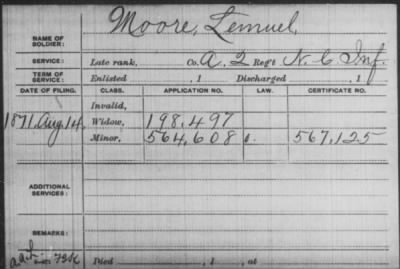 Moore, Lemuel
NAME OF SOLDIER:
SERVICE: Late rank, Co. A, 2 Reg't N. C. Inf.
TERM OF SERVICE: Enlisted , 1 Discharged , 1
DATE OF FILING. CLASS. APPLICATION NO. LAW. CERTIFICATE NO.
Invalid,
1871, Aug. 14 Widow, 198,497
Minor, 564,608 567,125
ADDITIONAL SERVICES:
REMARKS:
Died , 1 , at